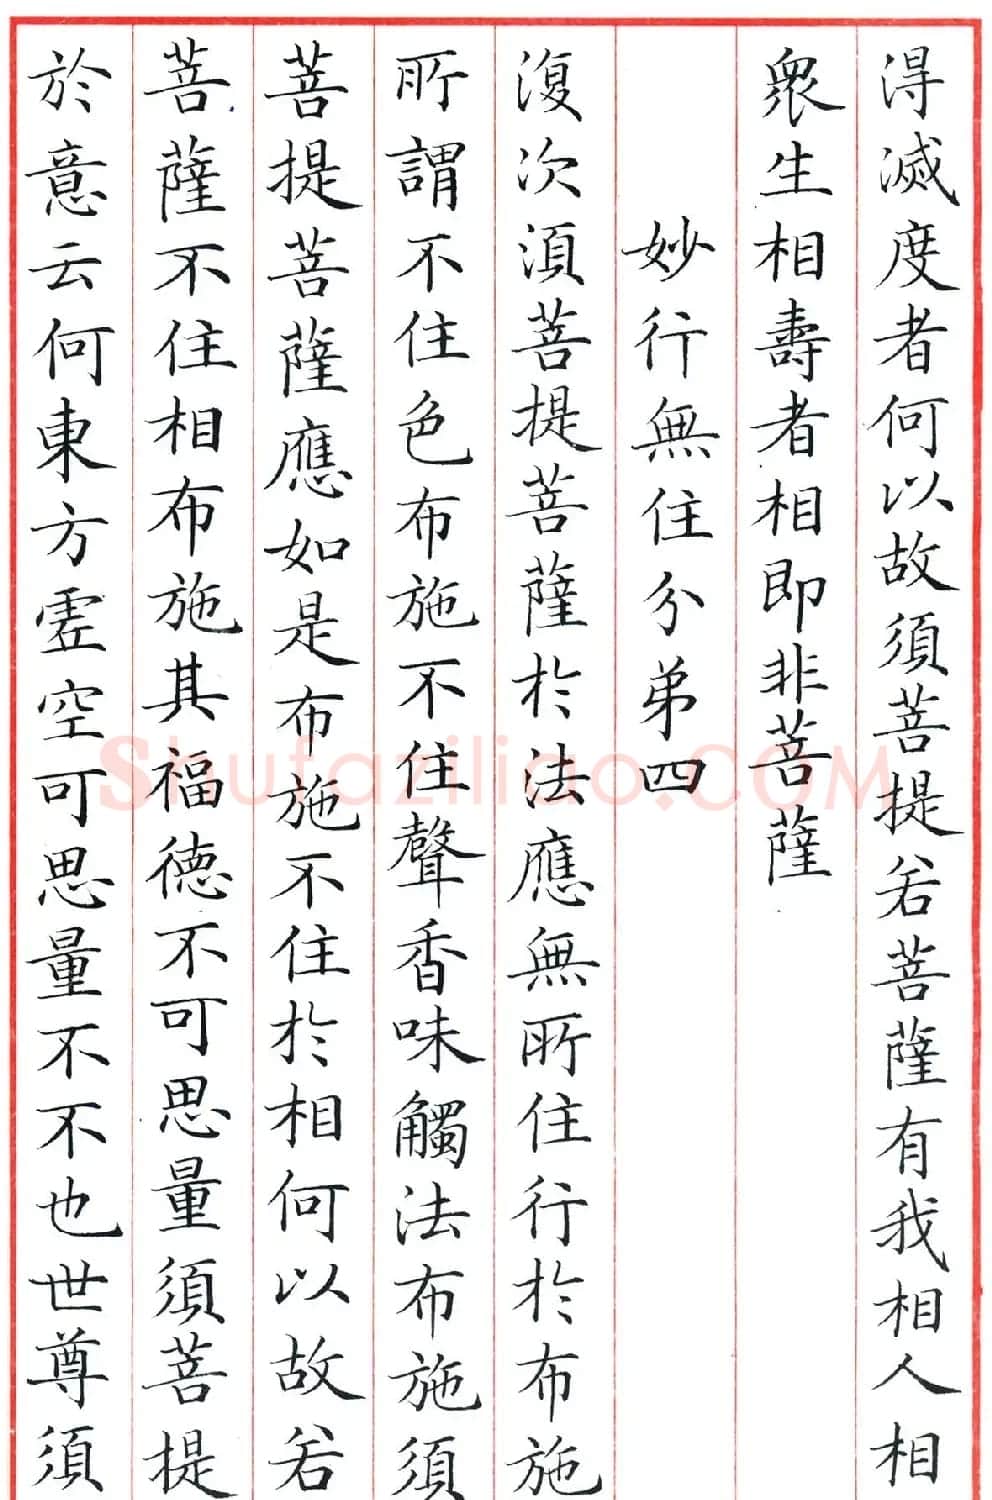 得滅度者何以故須菩提若菩薩有我相人相
衆生相壽者相即非菩薩
妙行無住分弟四
復次須菩提菩薩於法應無所住行於布施
所謂不住色布施不住聲香味觸法布施須
菩提菩薩應如是布施不住於相何以故若
菩薩不住相布施其福德不可思量須菩提
於意云何東方虛空可思量不不也世尊須
Shufaziliao.COM